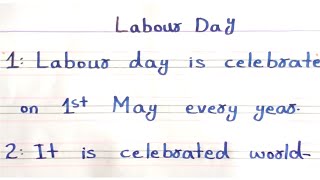 Labour Day
1: Labour day is celebrate
on 1st May every year.
2: It is celebrated world-